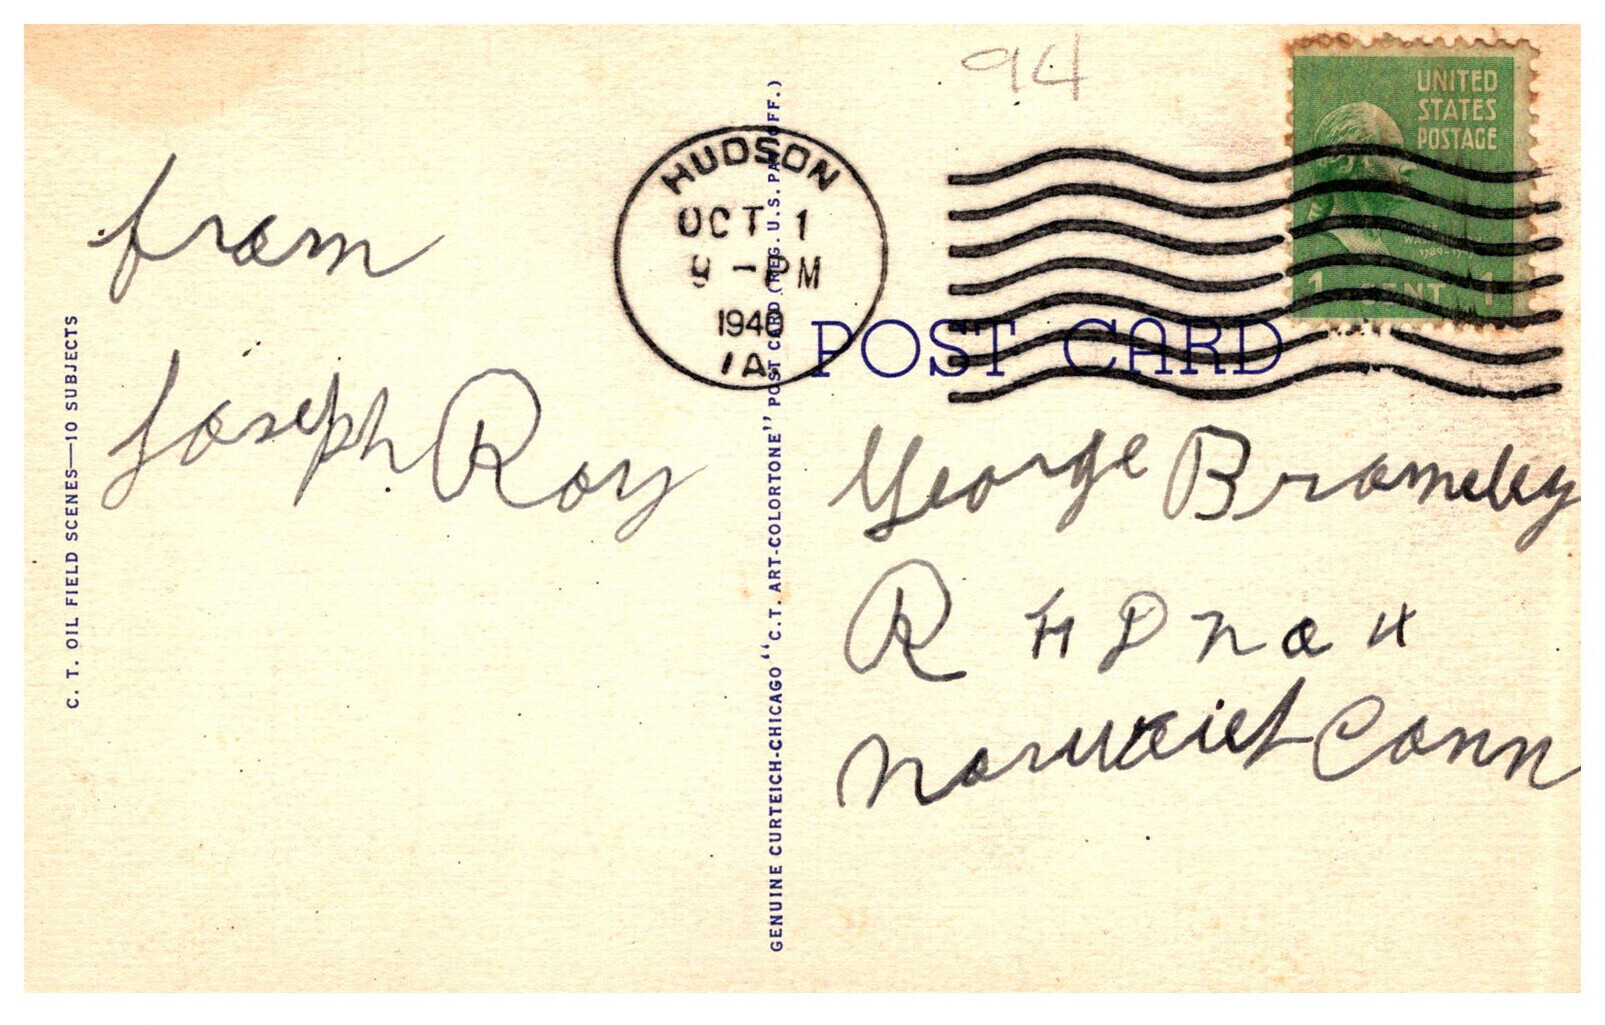 94
UNITED
STATES
POSTAGE
1 CENT 1
HUDSON
OCT 1
9 - PM
1940
IA
POST CARD
from
Joseph Roy
George Bromeley
R H D no 4
Norwich Conn
C. T. OIL FIELD SCENES—10 SUBJECTS
GENUINE CURTEICH-CHICAGO "C. T. ART-COLORTONE" POST CARD (REG. U.S. PAT. OFF.)